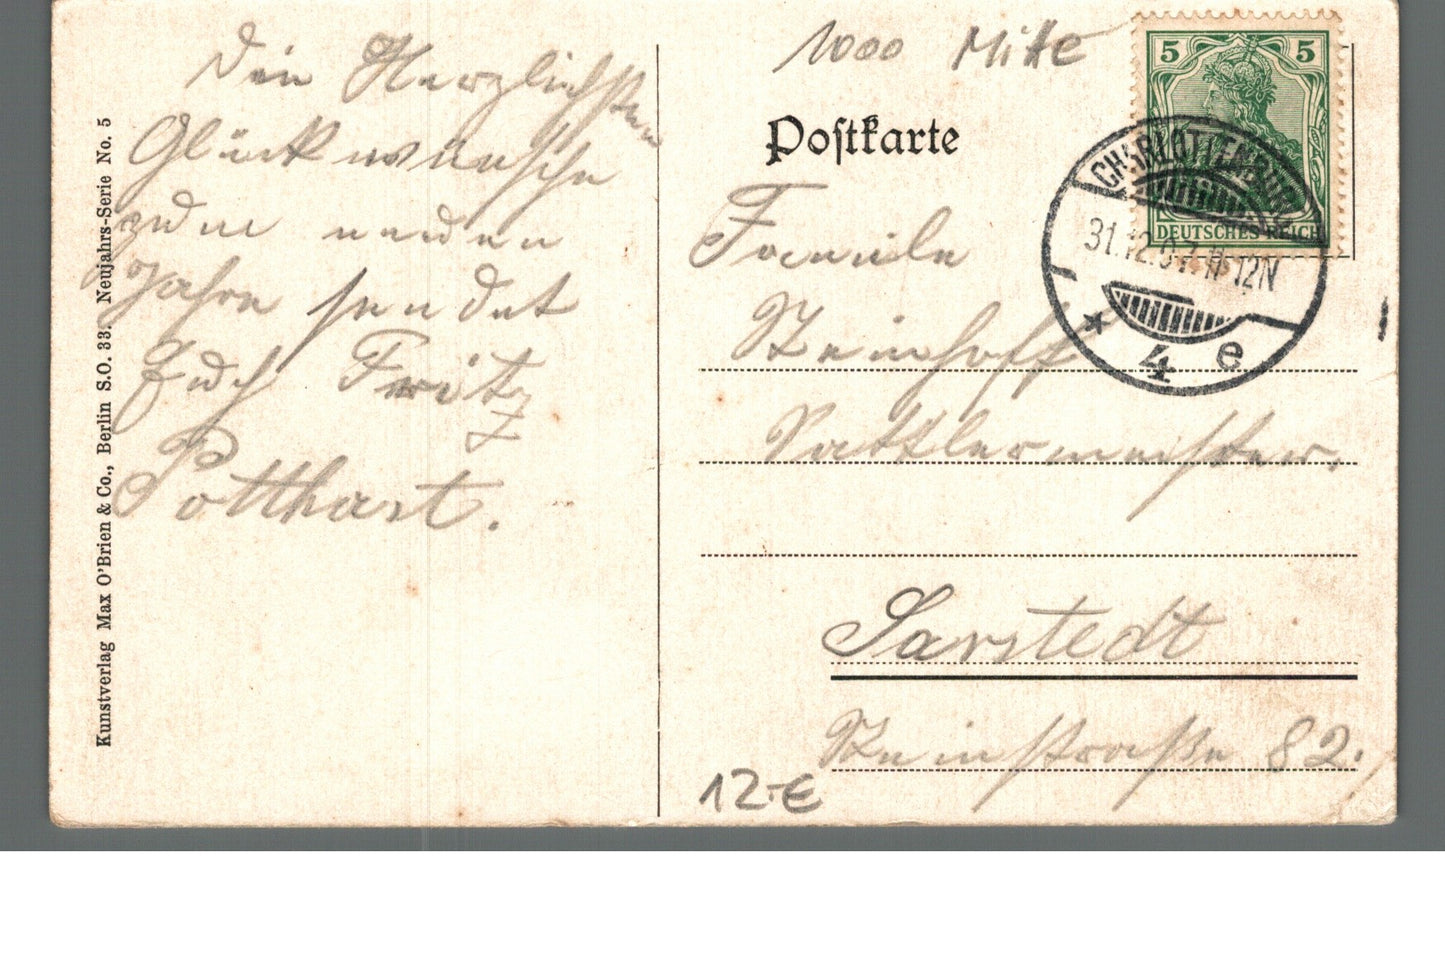 Die Herzlichsten
Glückwünsche
zum neuen
Jahre sendet
Euch Fritz
Potthast.
Kunstverlag Max O'Brien & Co., Berlin S.O. 33. Neujahrs-Serie No. 5
1000 Mitte
Postkarte
5 5
DEUTSCHES REICH
CHARLOTTENBURG
31.12.07.11-12N
* 4 e
Familie
Steinhoff
Sattlermeister.
Sarstedt
Steinstraße 82.
12.-€